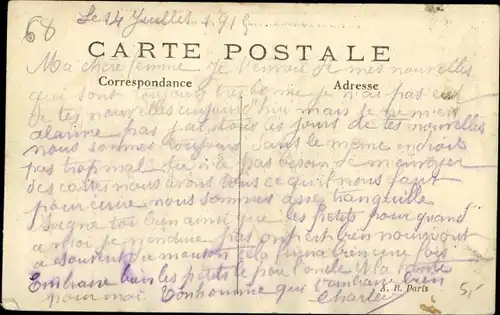 68
Le 14 Juillet 191
CARTE POSTALE
Ma chère femme Je t'envoie de mes nouvelles
Correspondance
Adresse
qui sont toujours très bonne je n'ai pas eut
de tes nouvelles aujourd'hui mais je
alarme pas j'ai tous les jours de tes nouvelles
nous sommes toujours dans le même endroit
pas trop mal tu n'a pas besoin de m'envoyer
des cartes nous avons tous ce qu'il nous faut
pour écrire nous sommes assez tranquille
Soigne toi bien ainsi que les petits pour quand
a moi je pas on est bien nourri on t
a souvent du mouton cela
Embrasse bien les petits pour l'oncle
pour moi Tonhomme qui t'embrasse bien
Charles
A. R. Paris
5,-